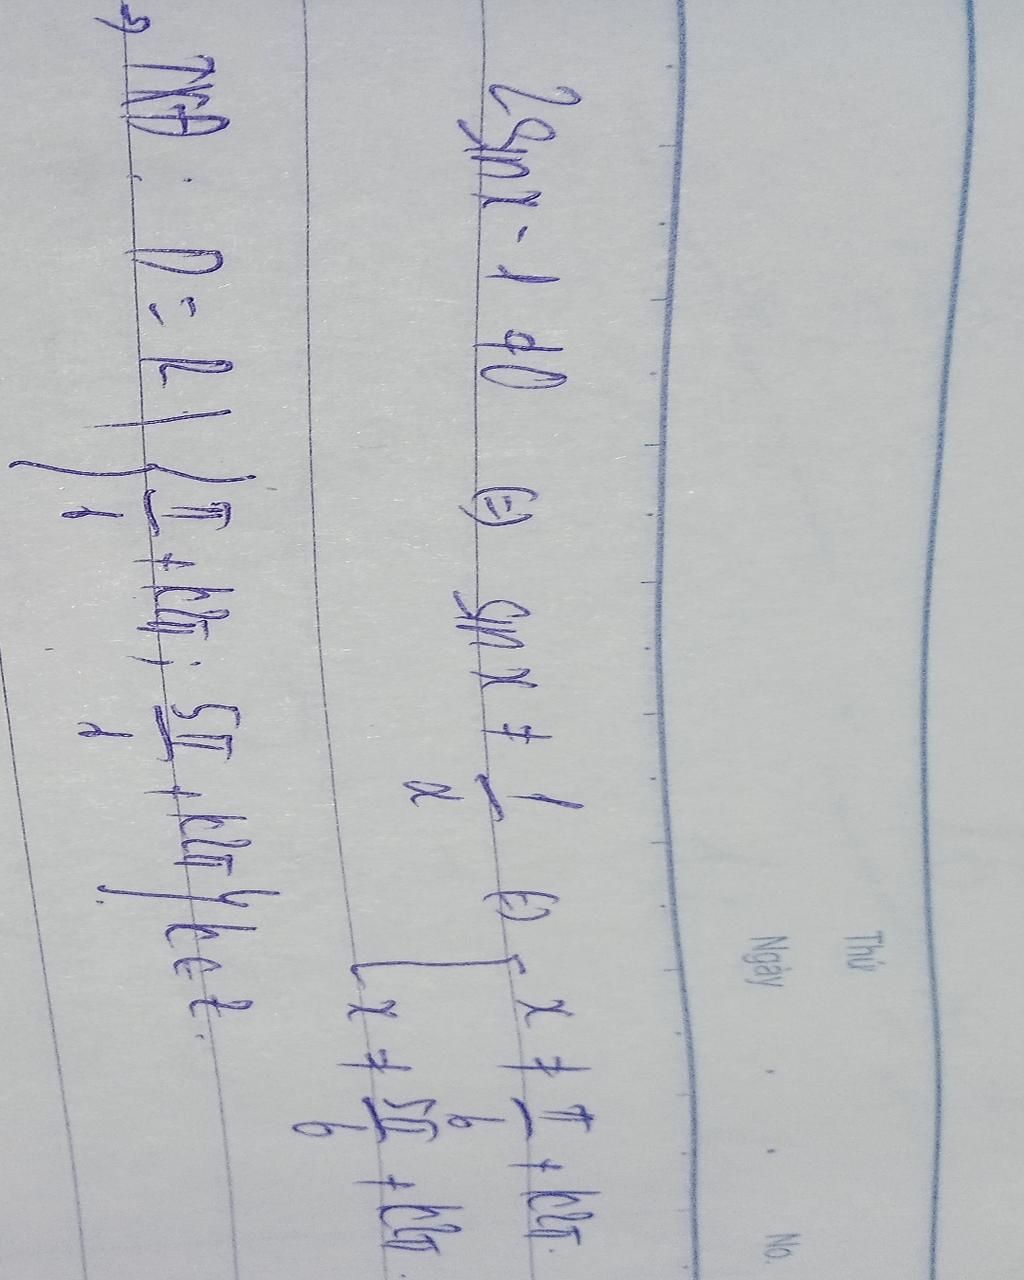 Thứ
Ngày . . No.
2sin x - 1 ≠ 0 ⇔ sin x ≠ 1/2 ⇔ [ x ≠ π/6 + k2π.
x ≠ 5π/6 + k2π.
→ TXĐ : D = R \ { π/6 + k2π ; 5π/6 + k2π } k ∈ Z.